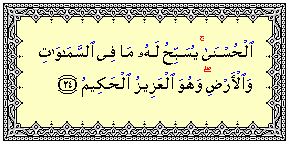 ٱلْحُسْنَىٰ ۚ يُسَبِّحُ لَهُۥ مَا فِى ٱلسَّمَٰوَٰتِ
وَٱلْأَرْضِ ۖ وَهُوَ ٱلْعَزِيزُ ٱلْحَكِيمُ ﴿٢٤﴾